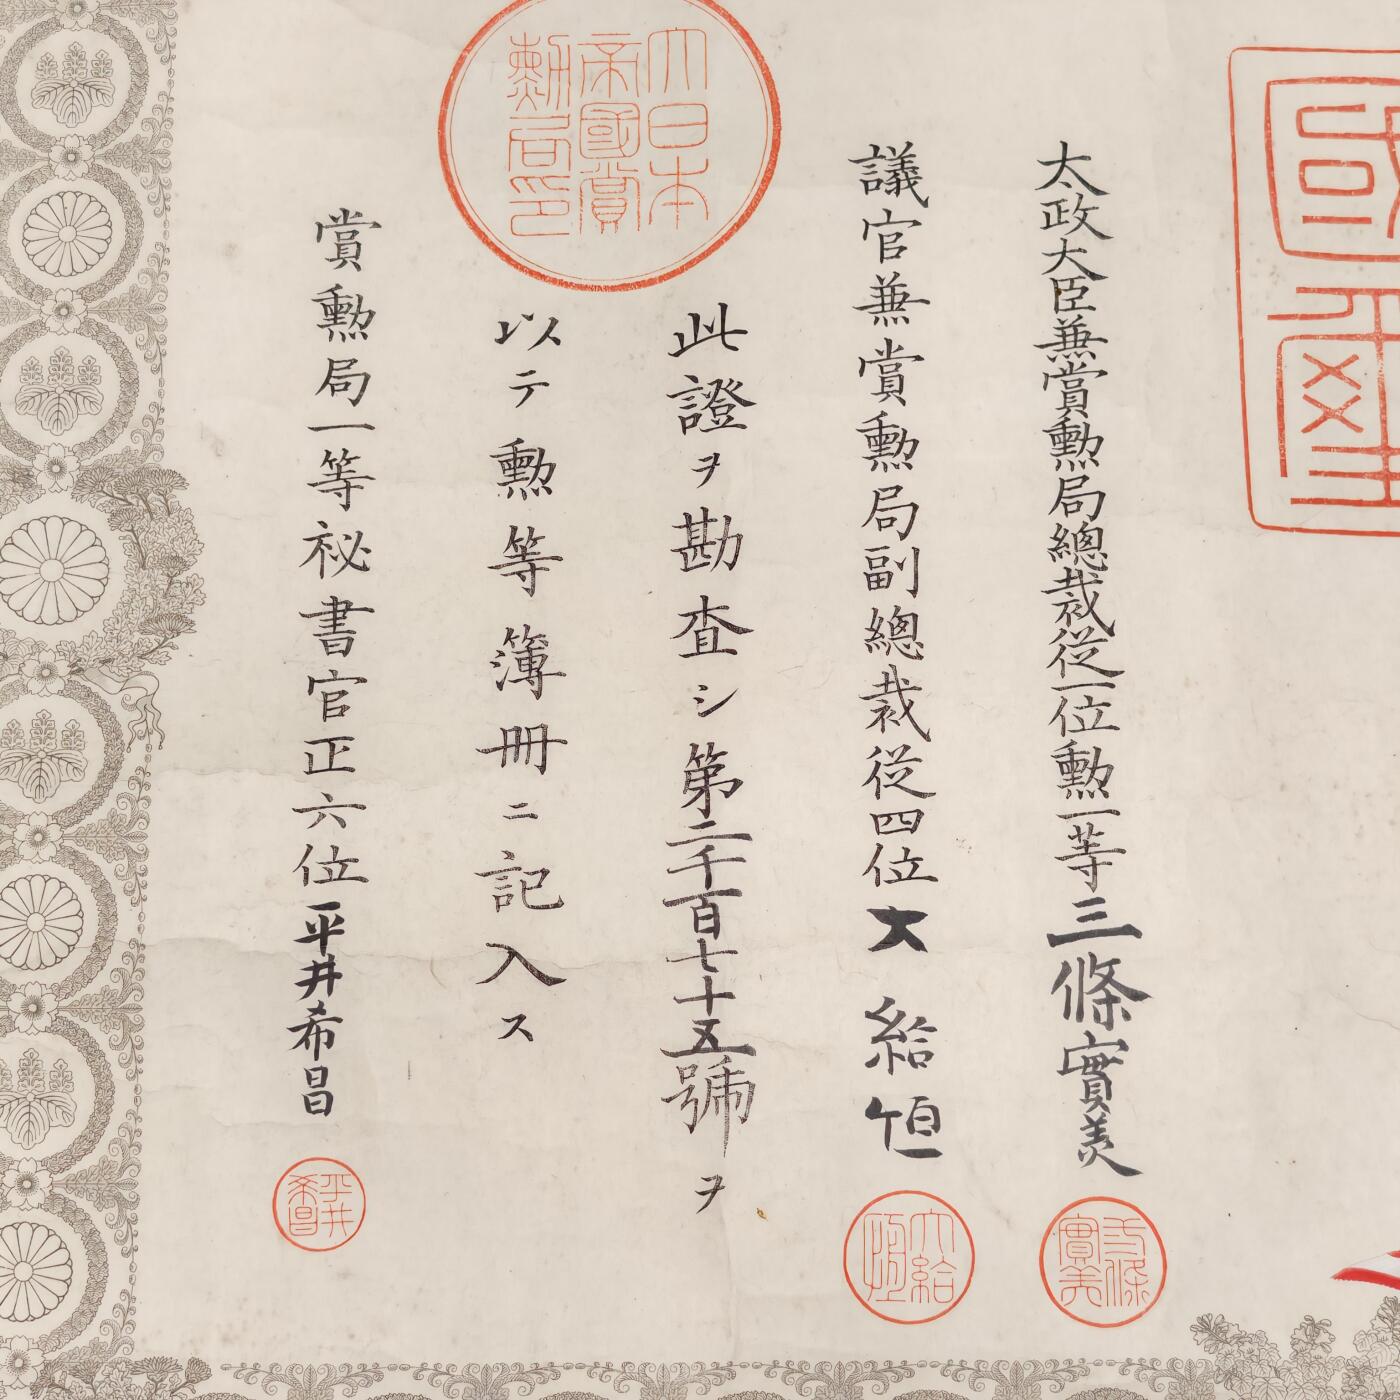 國璽
太政大臣兼賞勲局總裁從一位勲一等三條實美
三條實美
議官兼賞勲局副總裁從四位大給恒
大給恒
大日本帝國賞勲局印
此證ヲ勘査シ第二千百七十五號ヲ
以テ勲等簿冊ニ記入ス
賞勲局一等祕書官正六位平井希昌
平井希昌